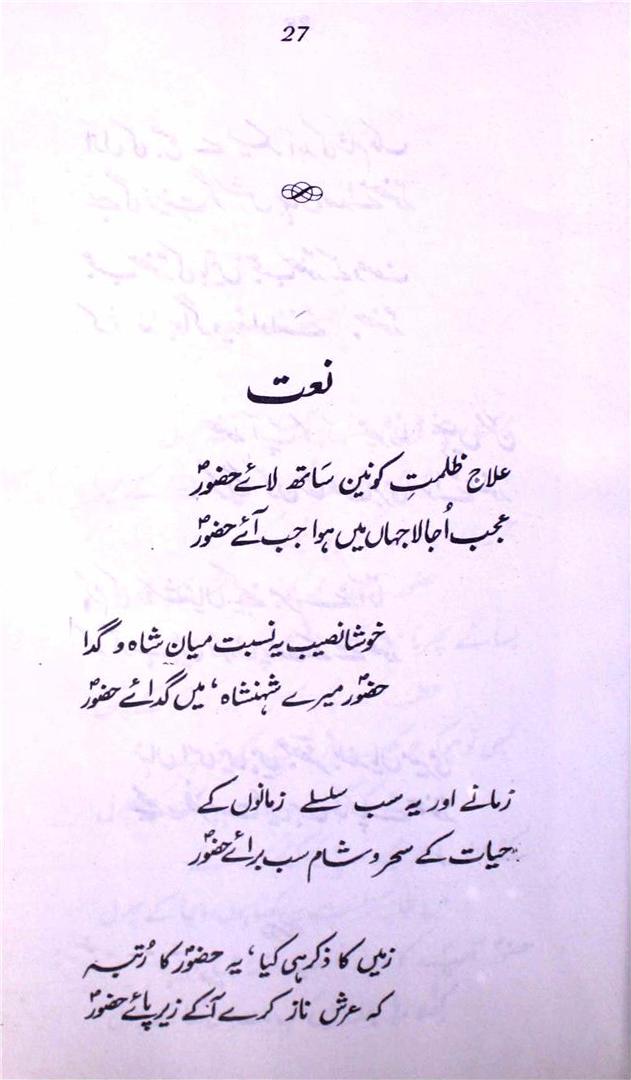 27
نعت
علاجِ ظلمتِ کونین سَاتھ لائے حضورؐ
عجب اُجالا جہاں میں ہوا جب آئے حضورؐ
خوشا نصیب یہ نسبت میانِ شاہ و گدا
حضورؐ میرے شہنشاہ، میں گدائے حضورؐ
زمانے اور یہ سب سلسلے زمانوں کے
حیات کے سحر و شام سب برائے حضورؐ
زمیں کا ذکر ہی کیا، یہ حضورؐ کا رُتبہ
کہ عرش ناز کرے آ کے زیرِ پائے حضورؐ